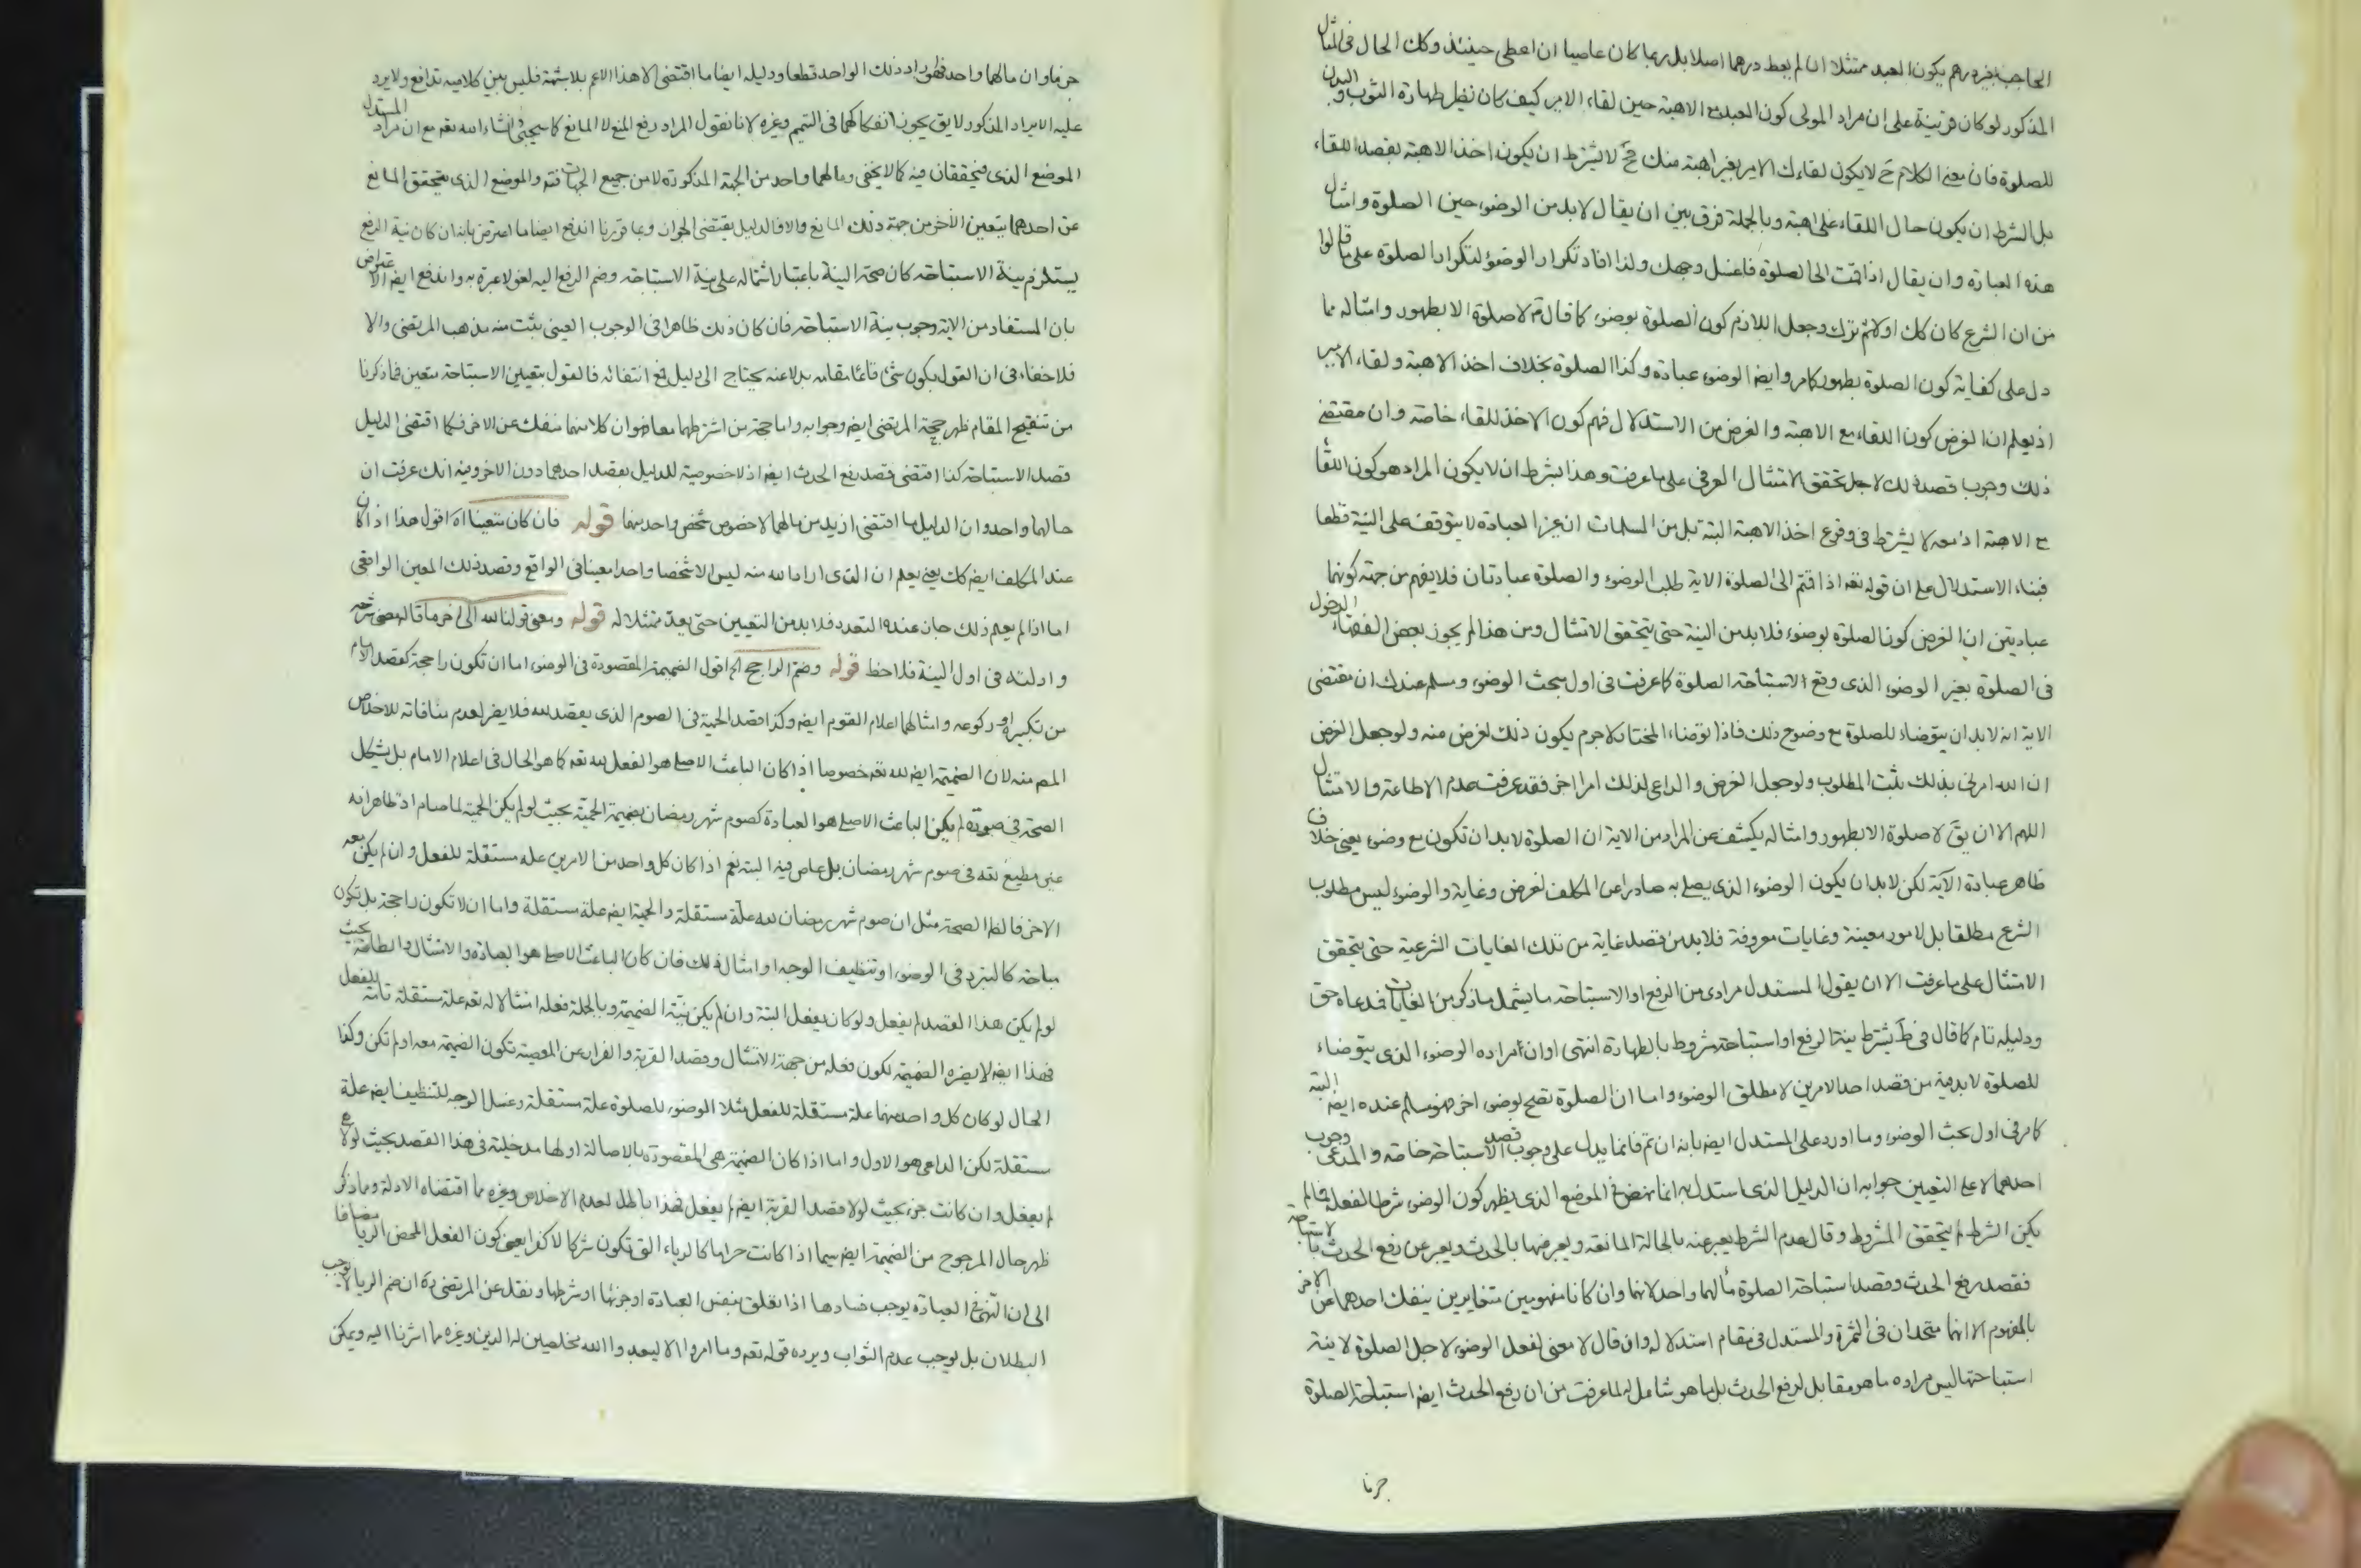 الحاجب بغير درهم يكون العبد ممتثلا ان لم يعط درهما اصلا بل ربما كان عاصيا ان اعطى حينئذ وكك الحال فى المثال
المذكور لو كان قرينة على ان مراد المولى كون العبد مع الاهبة حين لقاء الامير كيف كان نظير طهارة الثوب والبدن
للصلوة فان معنى الكلام ح لا يكون لقاءك الامير بغير اهبة منك فح لا يشترط ان يكون اخذ الاهبة بقصد اللقاء
بل الشرط ان يكون حال اللقاء على اهبة وبالجملة فرق بين ان يقال لابد من الوضوء حين الصلوة وامثال
هذه العبارة وان يقال اذا قمت الى الصلوة فاغسل وجهك ولذا افاد تكرار الوضوء لتكرار الصلوة على ما قالوا
من ان الشرع كان كك اولا ثم ترك وجعل اللازم كون الصلوة بوضوء كما قال م لا صلوة الا بطهور وامثاله مما
دل على كفاية كون الصلوة بطهور كامر وايضا الوضوء عبادة وكذا الصلوة بخلاف اخذ الاهبة ولقاء الامير
اذ يعلم ان الغرض كون اللقاء مع الاهبة والغرض من الاستدلال فهم كون الاخذ للقاء خاصة وان مقتضى
ذلك وجوب قصد ذلك لاجل تحقق الامتثال العرفى على ما عرفت وهذا بشرط ان لا يكون المراد هو كون اللقاء
مع الاهبة اذ معه لا يشترط فى وقوع اخذ الاهبة البتة بل من المسلمات ان غير العبادة لا يتوقف على النية قطعا
فبناء الاستدلال على ان قوله تعه اذا قمتم الى الصلوة الاية طلب الوضوء والصلوة عبادتان فلا يفهم من جهة كونهما
عبادتين ان الغرض كون الصلوة بوضوء فلابد من النية حتى يتحقق الامتثال ومن هذا لم يجوز بعض الفقهاء الدخول
فى الصلوة بغير الوضوء الذى وقع لاستباحة الصلوة كما عرفت فى اول مبحث الوضوء ومسلم عندك ان مقتضى
الاية انه لابد ان يتوضاء للصلوة مع وضوح ذلك فاذا توضاء المختار لا جرم يكون ذلك لغرض منه ولو جعل الغرض
ان الله امرنى بذلك يثبت المطلوب ولو جعل الغرض والداعى لذلك امرا اخر فقد عرفت عدم الاطاعة والامتثال
اللهم الا ان يق لا صلوة الا بطهور وامثاله يكشف عن المراد من الاية ان الصلوة لابد ان تكون مع وضوء يعنى خلاف
ظاهر عبادة الآية لكن لابد ان يكون الوضوء الذى يصلى به صادرا عن المكلف لغرض وغاية والوضوء ليس مطلوب
الشرع مطلقا بل لامور معينة وغايات معروفة فلابد من قصد غاية من تلك الغايات الشرعية حتى يتحقق
الامتثال على ما عرفت الا ان يقول المستدل مرادى من الرفع او الاستباحة ما يشمل ما ذكر من الغايات فدعاه حق
ودليله تام كما قال فى ط يشترط نية الرفع او استباحة مشروط بالطهارة انتهى او ان مراده الوضوء الذى يتوضاء
للصلوة لابد فيه من قصد احد الامرين لا مطلق الوضوء واما ان الصلوة تصح بوضوء اخر فهو مسلم عنده ايضا البتة
كامر فى اول بحث الوضوء وما اورد على المستدل ايضا بانه ان تم فانما يدل على وجوب قصد الاستباحة خاصة والمدعى وجوب
احدهما لا على التعيين جوابه ان الدليل الذى استدل به انما ينهض فى الموضع الذى يظهر كون الوضوء شرطا لفعله فما لم
يكن الشرط لم يتحقق المشروط وقال عدم الشرط يعبر عنه بالحالة المانعة ويعبر عنها بالحدث ويعبر عن رفع الحدث بالاستباحة
فقصد رفع الحدث وقصد استباحة الصلوة مألهما واحد لانهما وان كانا مفهومين متغايرين ينفك احدهما عن الاخر
بالمفهوم الا انهما متحدان فى الثمرة والمستدل فى مقام استدلاله وان قال لا معنى لفعل الوضوء لاجل الصلوة لا نية
استباحتها ليس مراده ما هو مقابل لرفع الحدث بل ما هو شامل له لما عرفت من ان رفع الحدث ايضا استباحة الصلوة
جزما
جزما وان مالهما واحد فهو راد ذلك الواحد قطعا ودليله ايضا ما اقتضى الا هذا الاعم بلا شبهة فليس بين كلاميه تدافع ولا يرد
عليه الايراد المذكور لا يق يجوز انفكاكهما فى التيمم وغيره لانا نقول المراد رفع المنع لا المانع كما سيجئ انشاء الله تعه مع ان مراد المستدل
الموضع الذى يتحققان فيه كما لا يخفى ومالهما واحد من الجهة المذكورة لا من جميع الجهات فتم والموضع الذى يتحقق المانع
عن احدهما يتعين الاخر من جهة ذلك المانع والا فالدليل يقتضى الجواز وبما قررنا اندفع ايضا ما اعترض بانه ان كان نية الرفع
يستلزم نية الاستباحة كان صحة النية باعتبار اشتماله على نية الاستباحة وضم الرفع اليه لغو لا عبرة به واندفع ايضا الاعتراض
بان المستفاد من الاية وجوب نية الاستباحة فان كان ذلك ظاهرا فى الوجوب العينى يثبت منه مذهب المرتضى والا
فلا خفاء فى ان القول بكون شئ قائما مقامه بدلا عنه يحتاج الى دليل فمع انتفائه فالقول بتعيين الاستباحة متعين فما ذكرنا
من تنقيح المقام ظهر حجة المرتضى ايضا وجوابه واما حجة من اشترطهما معا فهو ان كلا منهما منفك عن الاخر فكما اقتضى الدليل
قصد الاستباحة كذا اقتضى قصد رفع الحدث ايضا اذ لا خصوصية للدليل بقصد احدهما دون الاخر وفيه انك عرفت ان
حالهما واحد وان الدليل ما اقتضى ازيد من مالهما لا خصوص شخص واحد منهما قوله فان كان متعينا اه اقول هذا اذا كان
عند المكلف ايضا كك يعنى يعلم ان الذى اراد الله منه ليس الا شخصا واحدا معينا فى الواقع وقصد ذلك المعين الواقعى
اما اذا لم يعلم ذلك جاز عنده التعدد فلابد من التعيين حتى يعد ممتثلا له قوله ومعنى قولنا لله الى اخر ما قاله مضى شرحه
وادلته فى اول النية فلاحظ قوله وضم الراجح اه اقول الضميمة المقصودة فى الوضوء اما ان تكون راجحة كقصد الامام
من تكبيره او ركوعه وامثالهما اعلام القوم ايضا وكذا قصد الحمية فى الصوم الذى يعقد لله فلا يضر لعدم منافاته للاخلاص
المعم منه لان الضميمة ايضا لله تعه خصوصا اذا كان الباعث الاصلى هو الفعل لله تعه كما هو الحال فى اعلام الامام بل يشكل
الصحة فى صورة لم يكن الباعث الاصلى هو العبادة كصوم شهر رمضان بضميمة الحمية بحيث لو لم يكن الحمية لما صام اذ ظاهر انه
غير مطيع لله فى صوم شهر رمضان بل عاص فيه البتة نعم اذا كان كل واحد من الامرين علة مستقلة للفعل وان لم يكن معه
الاخر فالظ الصحة مثل ان صوم شهر رمضان لله علة مستقلة والحمية ايضا علة مستقلة واما ان لا تكون راجحة بل تكون
مباحة كالتبرد فى الوضوء او تنظيف الوجه او امثال ذلك فان كان الباعث الاصلى هو العبادة والامتثال والطاعة بحيث
لو لم يكن هذا القصد لم يفعل ولو كان يفعل البتة وان لم يكن نية الضميمة وبالجملة فعله امتثالا له تعه علة مستقلة تامة للفعل
فهذا ايضا لا يضره الضميمة لكون فعله من جهة الامتثال وقصد القربة والفرار عن المعصية تكون الضميمة معه او لم تكن وكذا
الحال لو كان كل واحد منهما علة مستقلة للفعل مثلا الوضوء للصلوة علة مستقلة وغسل الوجه للتنظيف ايضا علة
مستقلة لكن الداعى هو الاول واما اذا كان الضميمة هى المقصودة بالاصالة او لها مدخلية فى هذا القصد بحيث لولاها
لم يفعل وان كانت جزء بحيث لولا قصد القربة ايضا لم يفعل فهذا باطل لعدم الاخلاص وغيره مما اقتضاه الادلة ومما ذكر
ظهر حال المرجوح من الضميمة ايضا سيما اذا كانت حراما كالرياء التى تكون شركا لا كفرا يعنى كون الفعل المحض الريا مضافا
الى ان النهى فى العبادة يوجب فسادها اذا تعلق بنفس العبادة او جزئها او شرطها ونقل عن المرتضى ره ان ضم الريا لا يوجب
البطلان بل يوجب عدم الثواب ويرده قوله تعه وما امروا الا ليعبدوا الله مخلصين له الدين وغيره مما اشرنا اليه ويمكن